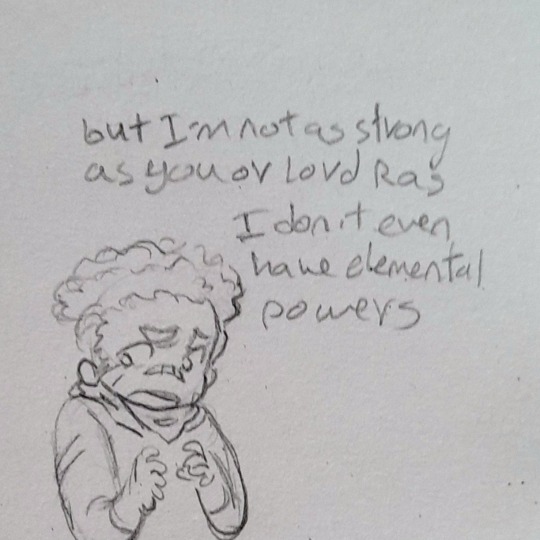 but I'm not as strong
as you or Lord Ras
I don't even
have elemental
powers